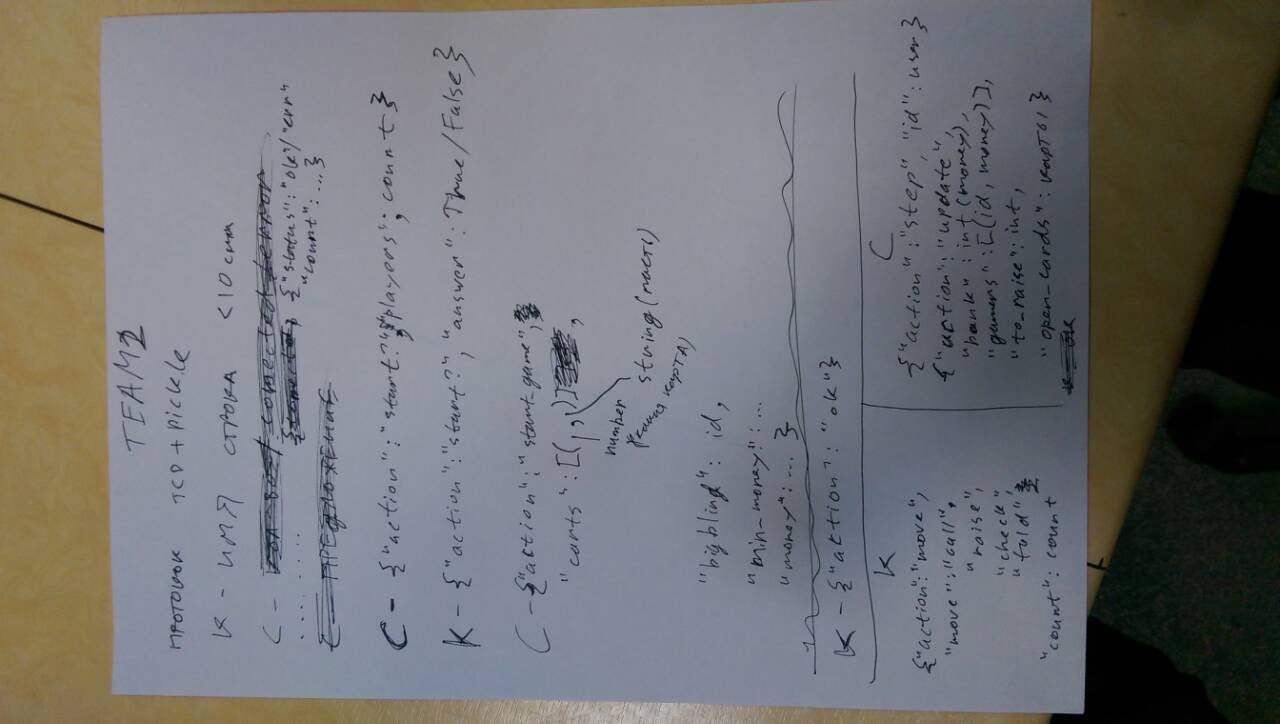 TEAM2
ПРОТОКОЛ TCP + Pickle
К - ИМЯ СТРОКА <10 сим
С - connected/error
{"status": "ok"/"err"
"count": ...}
С - ПРЕДЛОЖЕНИЕ
С - {"action": "start?", "players": count}
К - {"action": "start?", "answer": True/False}
С - {"action": "start_game",
"carts": [( , )],
number
string (масть)
карта)
"big blind": id,
"min_money": ...
"money": ... }
К - {"action": "ok"}
К
{"action": "move",
"move": "call",
"raise",
"check",
"fold"
"count": count
С
{"action": "step", "id": user}
{"action": "update",
"bank": int (money),
"gamers": [(id, money)],
"to_raise": int,
"open_cards": карты }